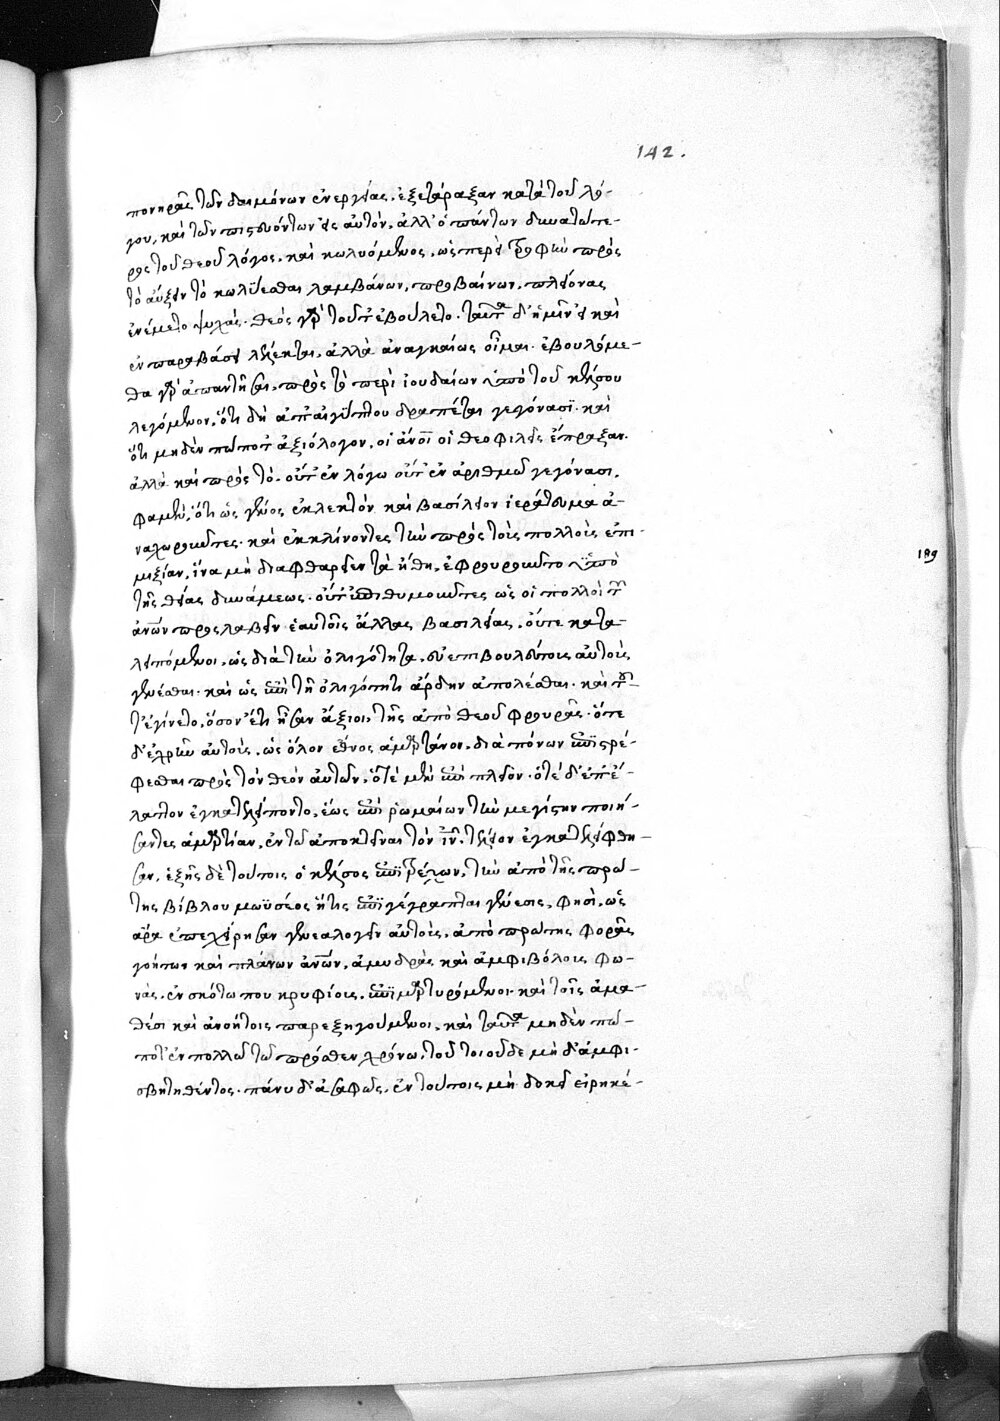 142.
πονηρᾶς τῶν δαιμόνων ἐνεργείας. ἐξετάραξαν κατὰ τοῦ λό-
γου, καὶ τῶν πιστευόντων εἰς αὐτόν. ἀλλ' ὁ πάντων δυνατώτε-
ρος τοῦ θεοῦ λόγος, καὶ κωλυόμενος, ὡσπερεὶ τροφὴν πρὸς
τὸ αὔξειν τὸ κωλύεσθαι λαμβάνων, προβαίνων, πλείονας
ἐνέμετο ψυχάς. θεὸς γὰρ τοῦτ' ἐβούλετο. ταῦτα δ' ἡμῖν εἰ καὶ
ἐν παρεκβάσει λέλεκται, ἀλλὰ ἀναγκαίως οἶμαι. ἐβουλόμε-
θα γὰρ ἀπαντῆσαι, πρὸς τὰ περὶ ἰουδαίων ὑπὸ τοῦ κέλσου
λεγόμενον, ὅτι δὴ ἀπ' αἰγύπτου δραπέται γεγόνασϊ. καὶ
ὅτι μηδὲν πώποτ' ἀξιόλογον, οἱ ἄνοι οἱ θεοφιλεῖς ἔπραξαν.
ἀλλὰ καὶ πρὸς τὸ. οὔτ' ἐν λόγω οὔτ' ἐν ἀριθμῶ γεγόνασι,
φαμὲν, ὅτι ὡς γένος ἐκλεκτὸν καὶ βασίλειον ἱεράτευμα ἀ-
ναχωροῦντες. καὶ ἐκκλίνοντες τὴν πρὸς τοὺς πολλοὺς ἐπι-
μιξίαν, ἵνα μὴ διαφθαρεῖεν τὰ ἤθη, ἐφρουροῦντο ὑπὸ
τῆς θείας δυνάμεως. οὔτ' ἐπιθυμοῦντες ὡς οἱ πολλοὶ τῶν
ἀνῶν προσλαβεῖν ἑαυτοῖς ἄλλας βασιλείας. οὔτε κατα-
λειπόμενοι, ὡς διὰ τὴν ὀλιγότητα, εὐεπιβουλεύτους αὐτοὺς
γενέσθαι. καὶ ὡς ἐπὶ τῆ ὀλιγότητι ἄρδην ἀπολέσθαι. καὶ τοῦ-
τ' ἐγίνετο, ὅσον ἔτι ἦσαν ἄξιοι, τῆς ἀπὸ θεοῦ φρουρᾶς. ὅτε
δ' ἐχρῆν αὐτοὺς, ὡς ὅλον ἔθνος ἁμαρτάνον, διὰ πόνων ἐπιστρέ-
φεσθαι πρὸς τὸν θεὸν αὐτῶν, ὁτὲ μὲν ἐπὶ πλεῖον. ὁτὲ δ' ἐπ' ἔ-
λαττον ἐγκατελείποντο, ἕως ἐπὶ ῥωμαίων τὴν μεγίστην ποιή-
σαντες ἁμαρτίαν, ἐν τῶ ἀποκτεῖναι τὸν ἰν̄, τέλεον ἐγκατελείφθη-
σαν. ἑξῆς δὲ τούτοις ὁ κέλσος ἐπιτρέχων, τὴν ἀπὸ τῆς πρώ-
της βίβλου μωϋσέος ἥτις ἐπϊγέγραπται γένεσις, φησὶν, ὡς
ἄρα ἐπεχείρησαν γενεαλογεῖν αὐτοὺς, ἀπὸ πρώτης φορᾶς
γοήτων καὶ πλάνων ἀνῶν, ἀμυδρὰς καὶ ἀμφιβόλους φω-
νὰς, ἐν σκότω που κρυφίους, ἐπϊμαρτυρόμενοι. καὶ τοῖς ἀμα-
θέσι καὶ ἀνοήτοις παρεξηγούμενοι, καὶ ταῦτα μηδὲν πώ-
ποτ' ἐν πολλῶ τῶ πρόσθεν χρόνω, τοῦ τοιοῦδε μὴ δ' ἀμφι-
σβητηθέντος. πάνυ δ' ἀσαφῶς, ἐν τούτοις μὴ δοκεῖ εἰρηκέ-
189